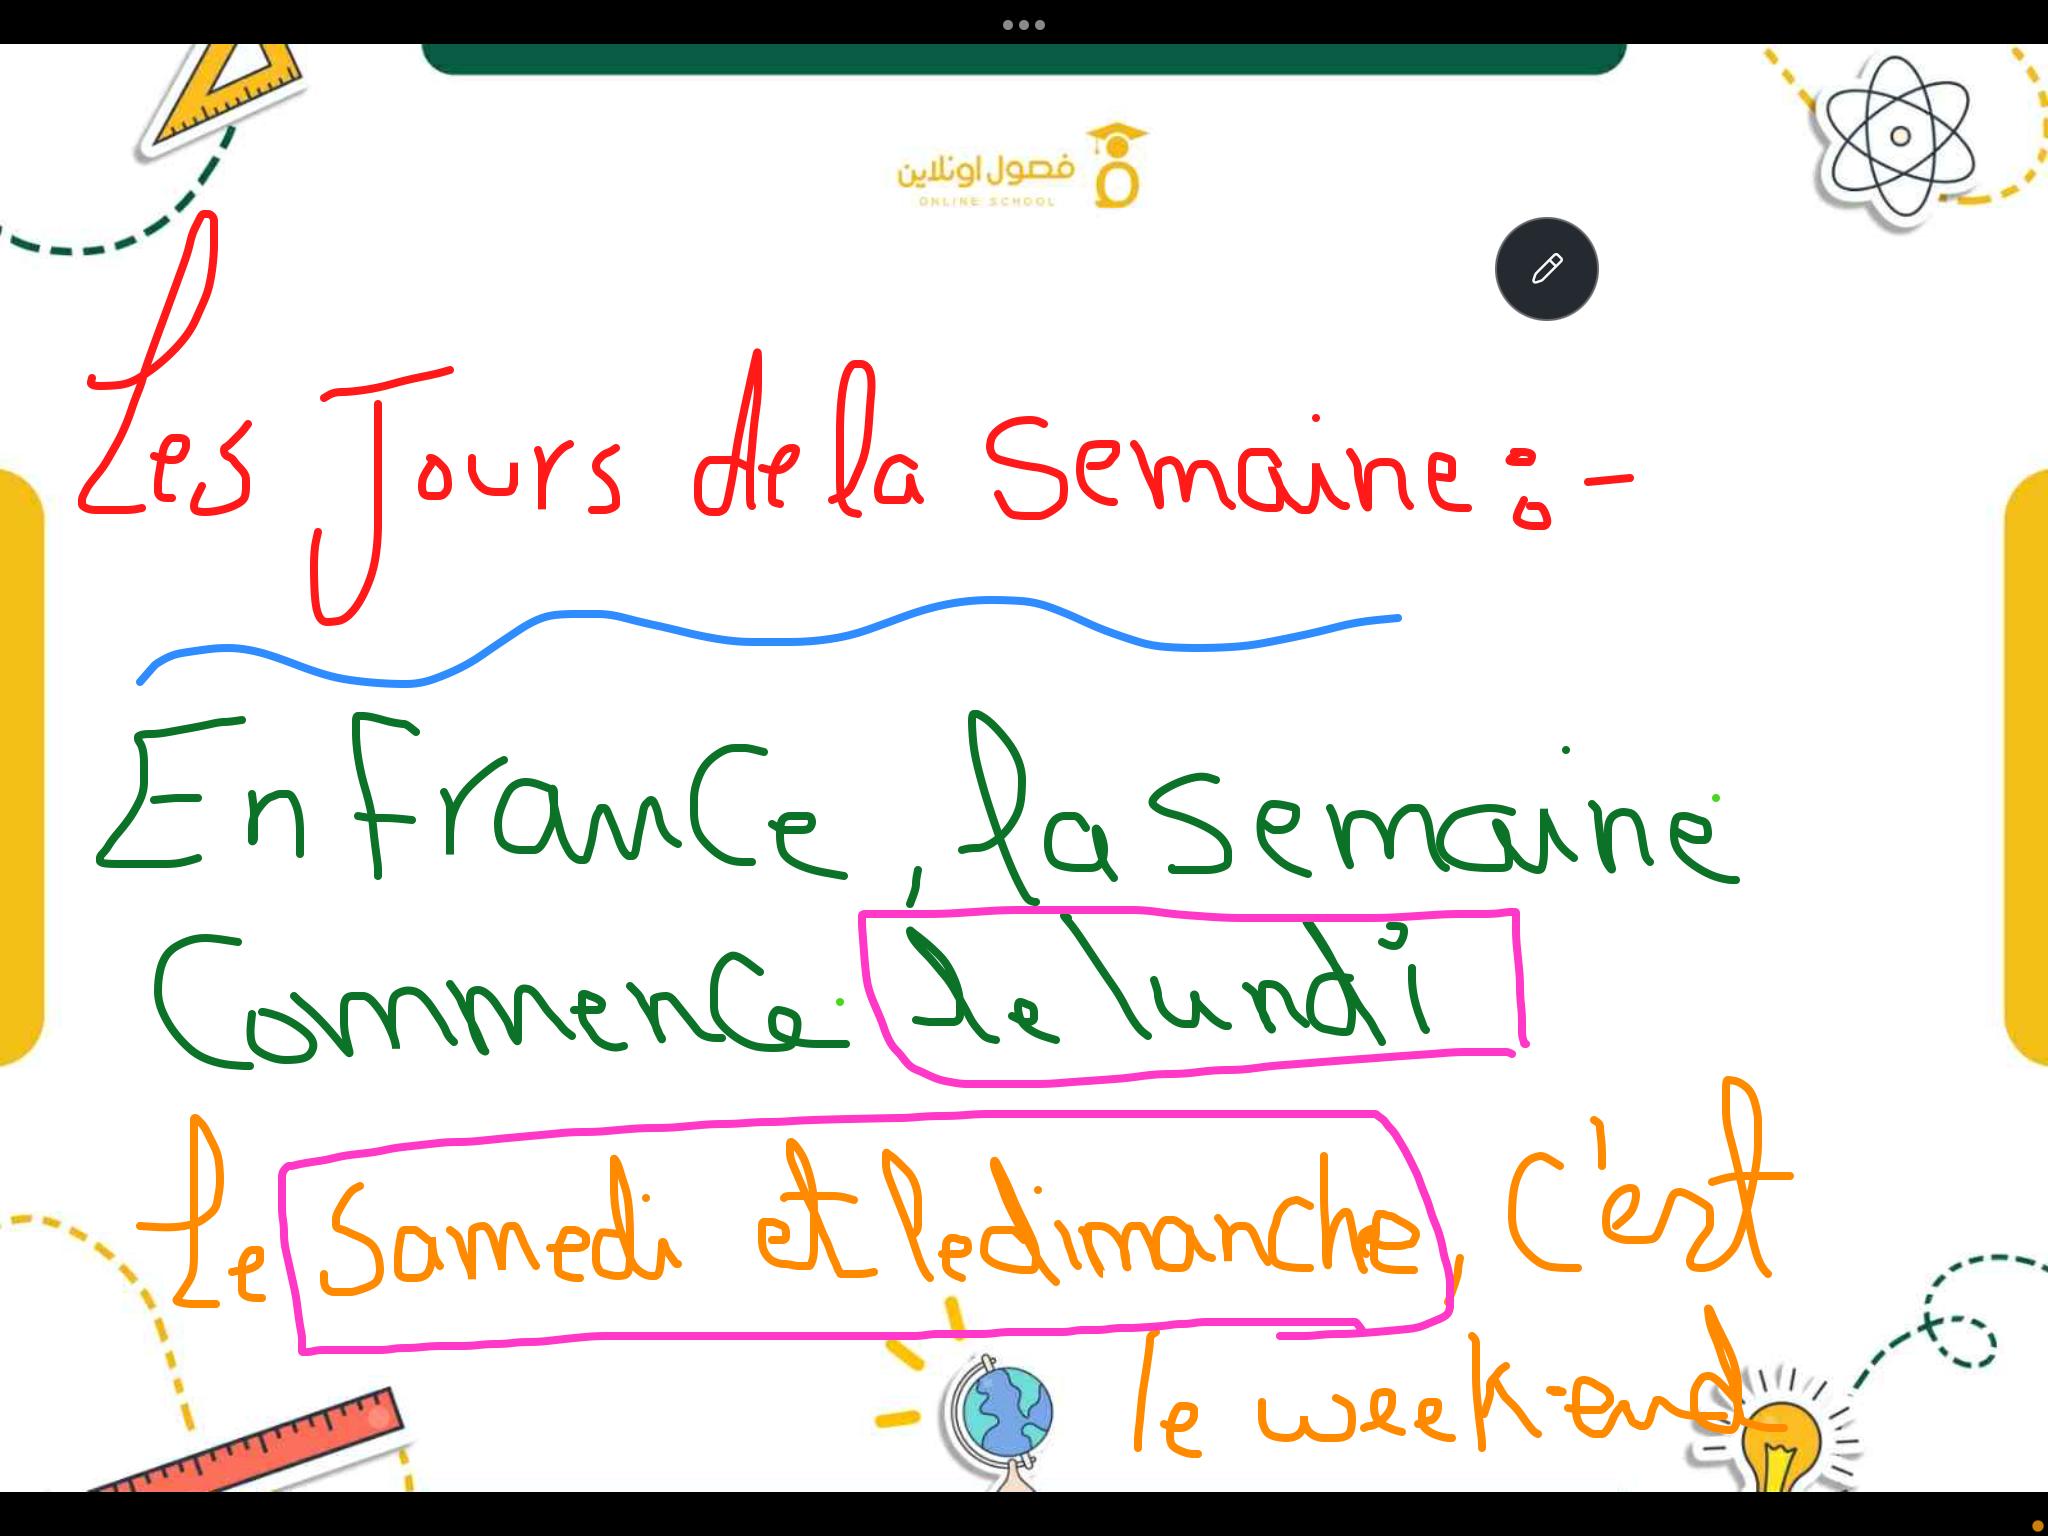 فصول اونلاين
ONLINE SCHOOL
Les Jours de la semaine :-
En France, la semaine
Commence le lundi
Le samedi et le dimanche, c'est
le week-end